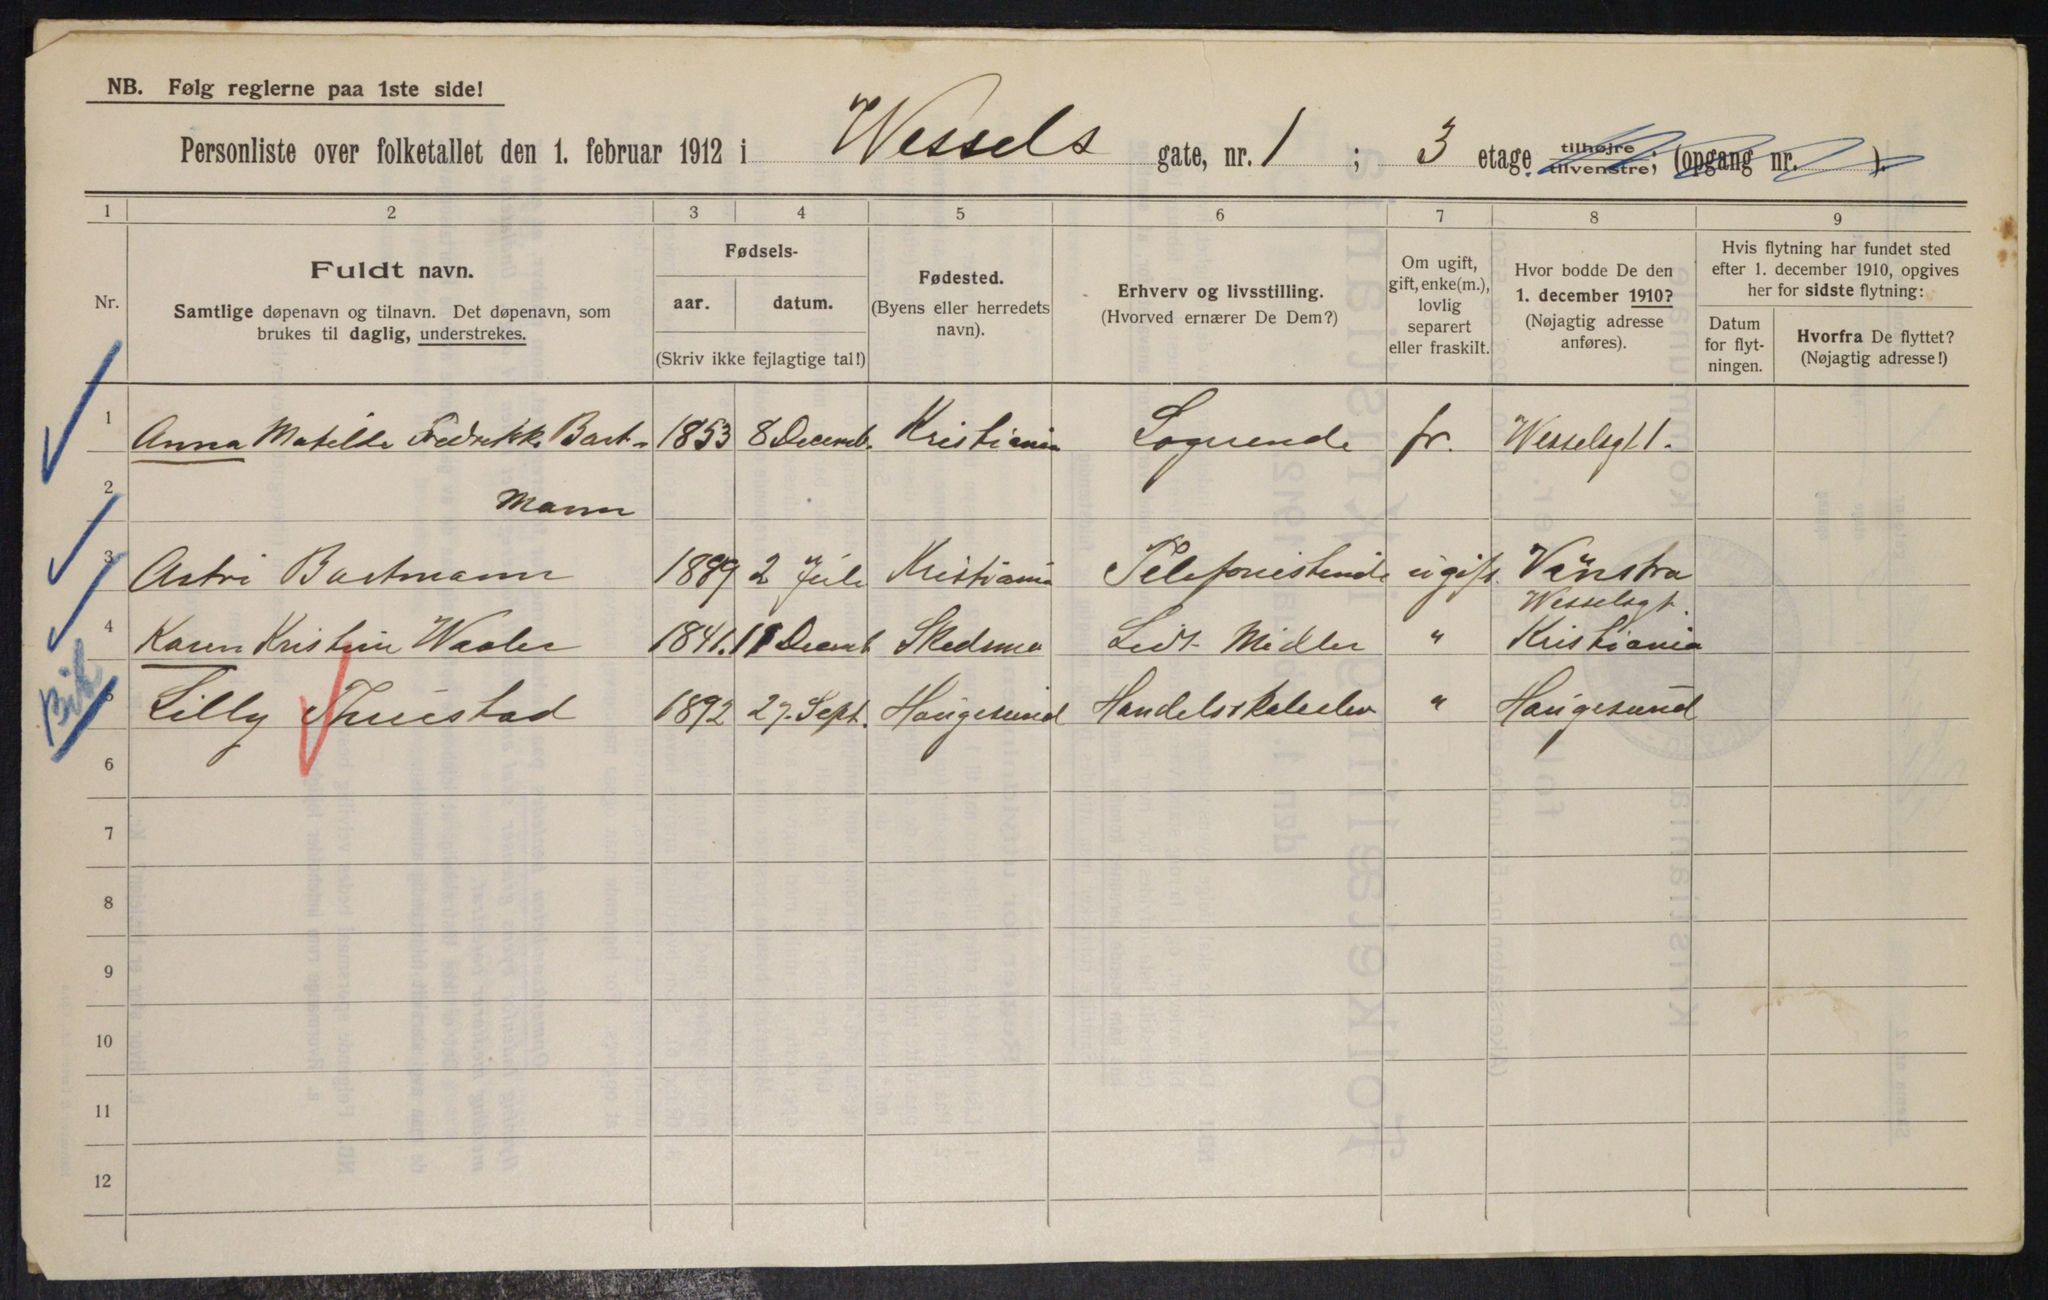 NB. Følg reglerne paa 1ste side!
Personliste over folketallet den 1. februar 1912 i Wessels gate, nr. 1 ; 3 etage tilhøjre tilvenstre; (opgang nr. ).
1 2 3 4 5 6 7 8 9
Nr.
Fuldt navn.
Samtlige døpenavn og tilnavn. Det døpenavn, som
brukes til daglig, understrekes.
Fødsels-
aar. datum.
(Skriv ikke fejlagtige tal!)
Fødested.
(Byens eller herredets
navn).
Erhverv og livsstilling.
(Hvorved ernærer De Dem?)
Om ugift,
gift, enke(m.),
lovlig
separert
eller fraskilt.
Hvor bodde De den
1. december 1910?
(Nøjagtig adresse
anføres).
Hvis flytning har fundet sted
efter 1. december 1910, opgives
her for sidste flytning:
Datum
for flyt-
ningen.
Hvorfra De flyttet?
(Nøjagtig adresse!)
1 Anna Matilde Fredrikke Bart- 1853 8 Decemb. Kristiania Logerende fr. Wesselsgt 1.
2 mann
3 Astri Bartmann 1889 2 Juli Kristiania Telefonistinde ugift. Vänstra
Wesselsgt.
4 Karen Kristine Waaler 1841. 11 Decemb Skedsmo Lidt Midler " Kristiania
5 Lilly Thuestad 1892 27. Sept. Haugesund Handelsskoleelev " Haugesund
6
7
8
9
10
11
12